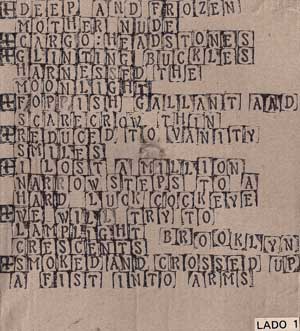 DEEP AND FROZEN
MOTHER NUDE
CARGO HEADSTONES
GLINTING BUCKLES
HARNESSED THE
MOONLIGHT
FOPPISH GALLANT AND
SCARECROW THIN
REDUCED TO VANITY
SMILES
I LOST A MILLION
NARROW STEPS TO A
HARD LUCK COCKEYE
WE WILL TRY TO
LAMPLIGHT BROOKLYN
CRESCENTS
SMOKED AND CROSSED UP
A FIST INTO ARMS
LADO 1